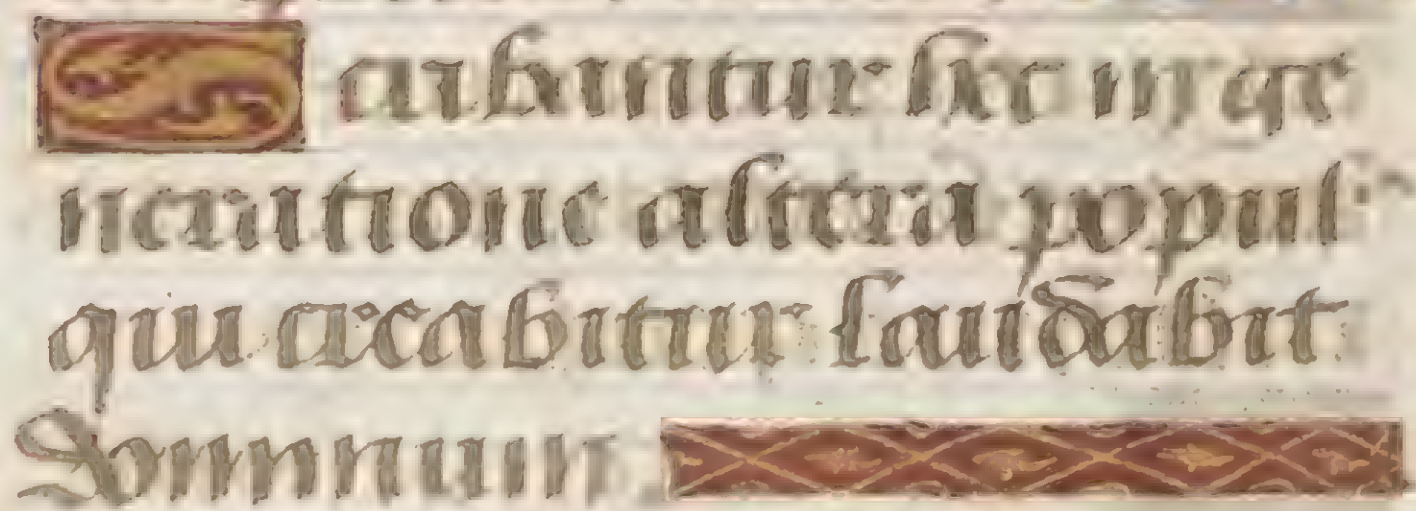 Scribantur hec in ge
neratione altera popul'
qui creabitur laudabit
Dominum